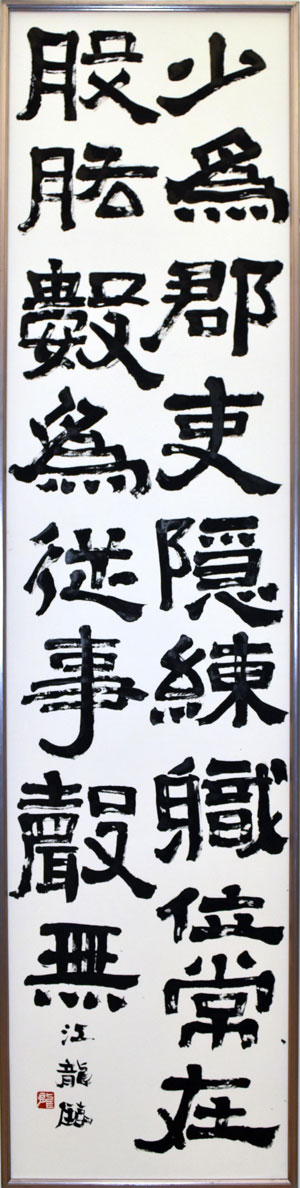 少爲郡吏隱練職位常在
股肱數爲從事聲無
江龍